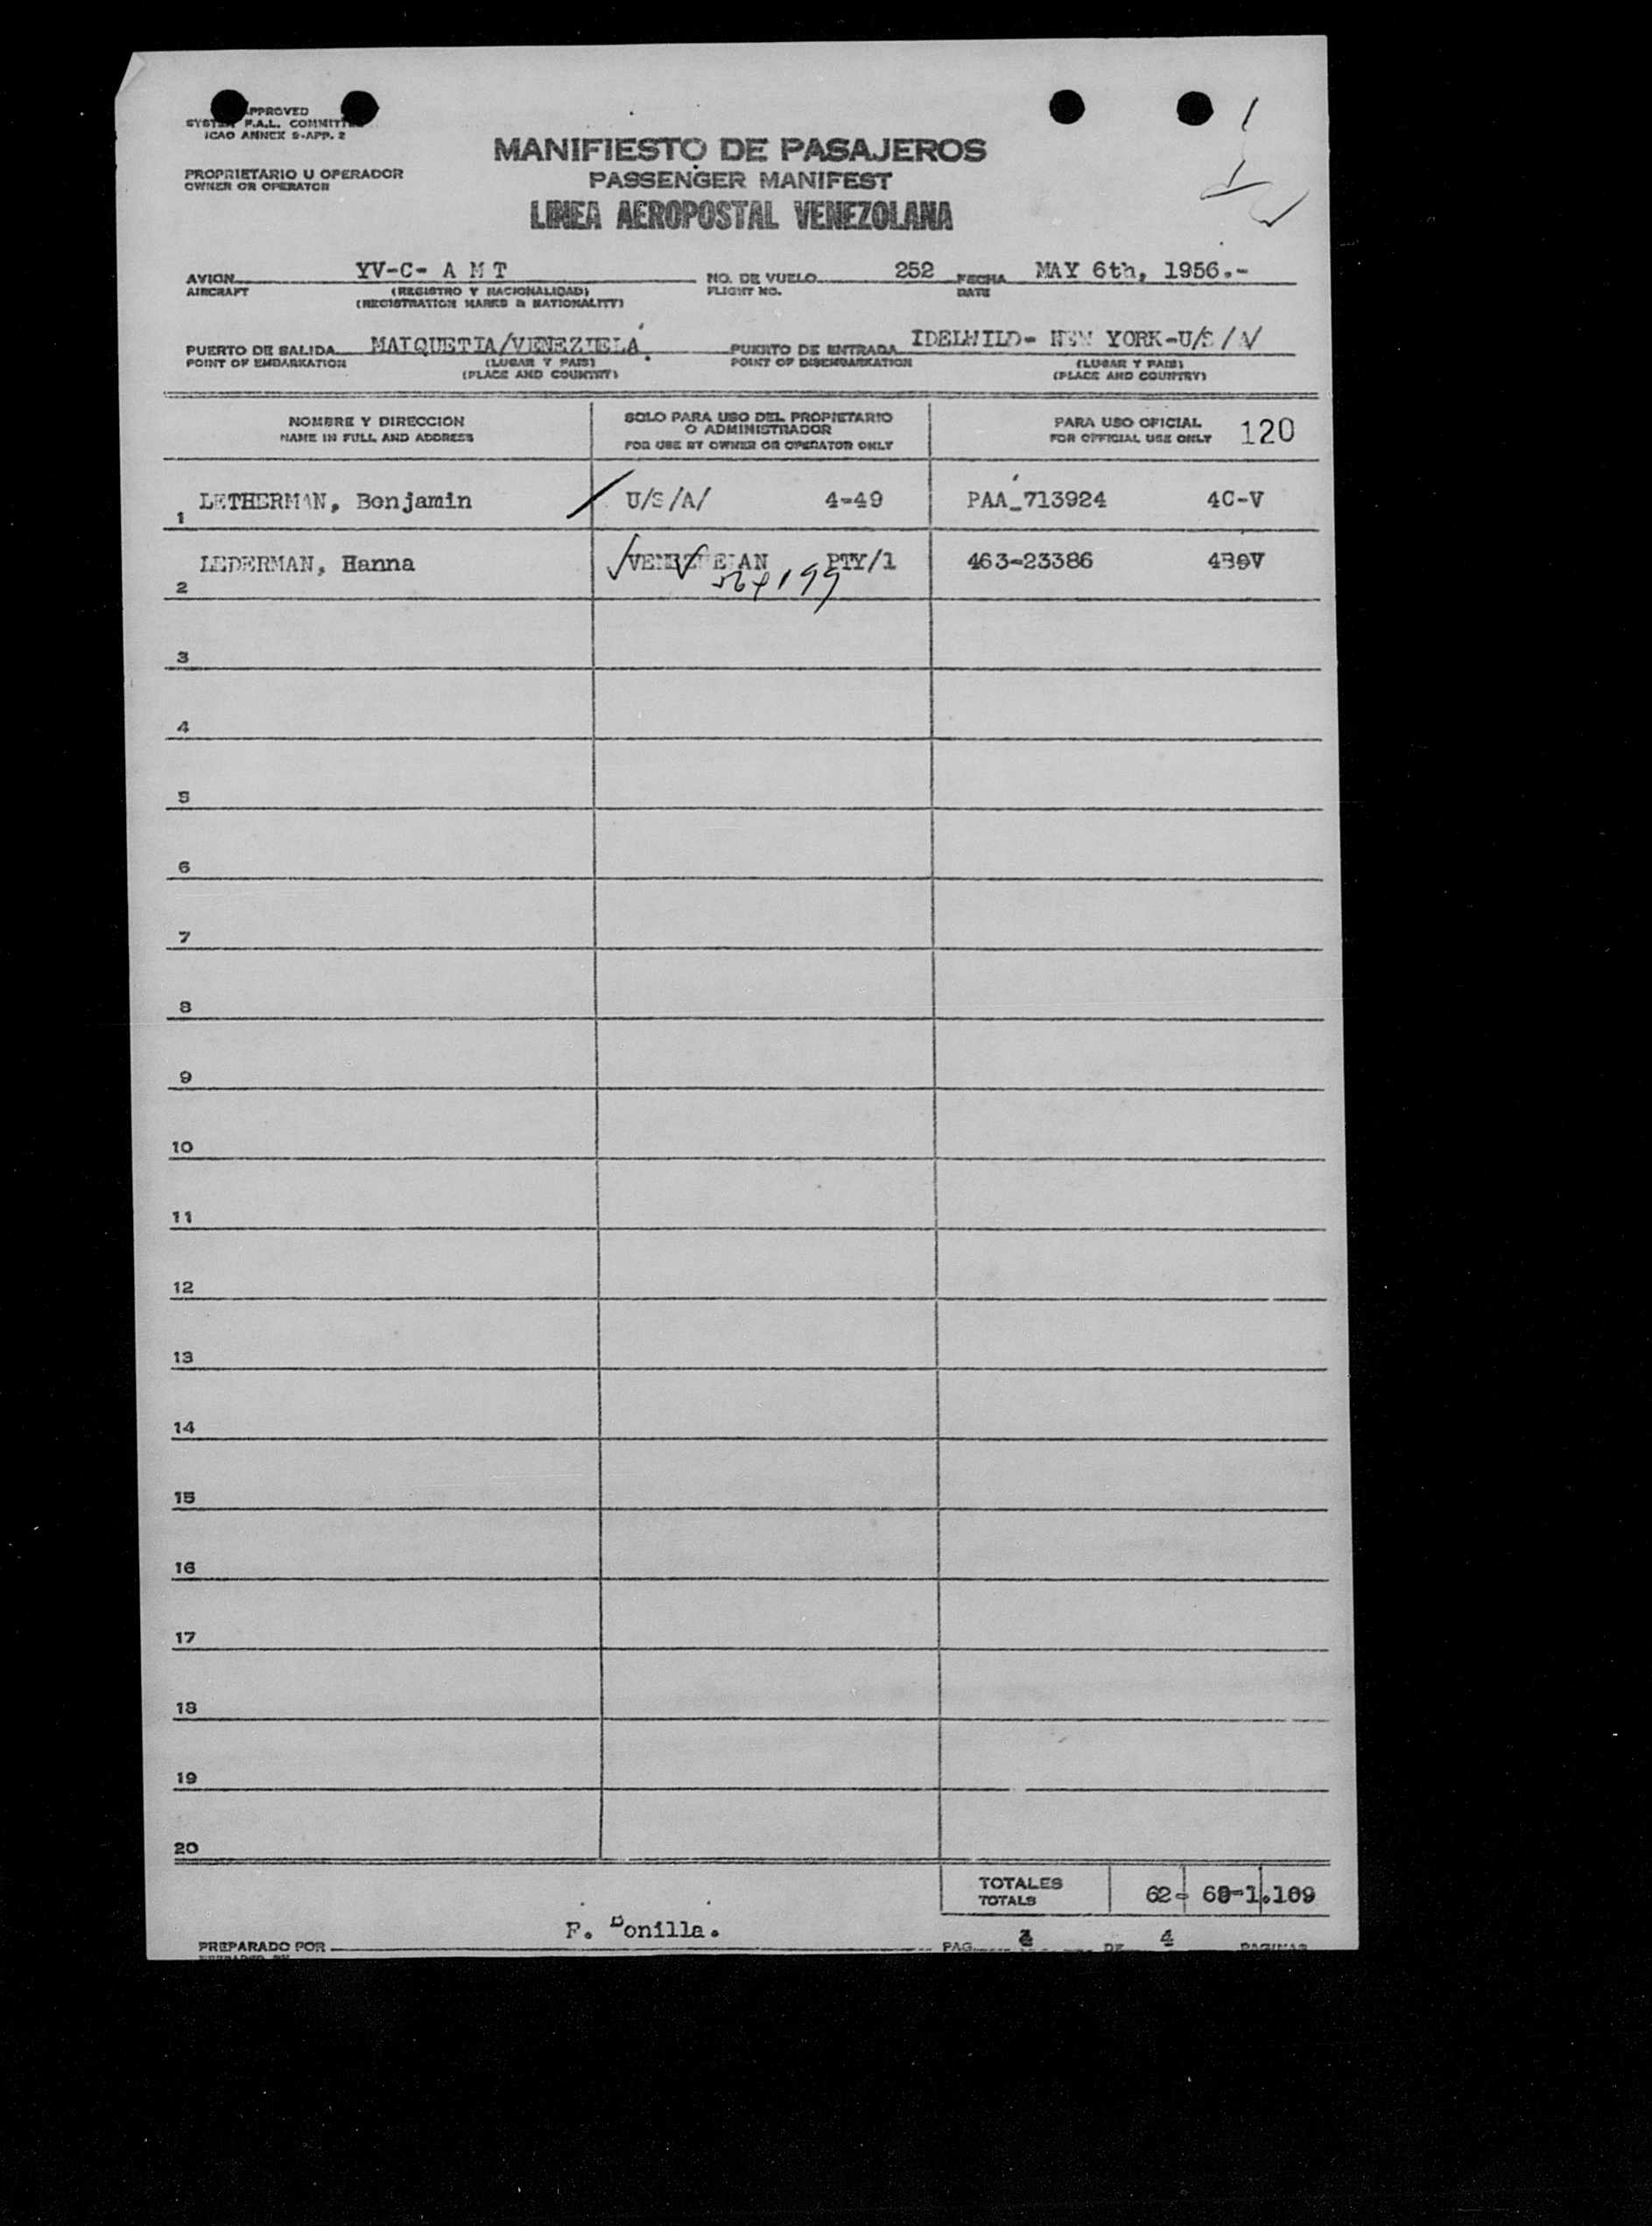 APPROVED
SYSTEM F.A.L. COMMITTEE
ICAO ANNEX 9-APP. 2
MANIFIESTO DE PASAJEROS
PROPRIETARIO U OPERADOR
OWNER OR OPERATOR
PASSENGER MANIFEST
LINEA AEROPOSTAL VENEZOLANA
AVION YV-C- A M T NO. DE VUELO 252 FECHA MAY 6th, 1956.-
AIRCRAFT (REGISTRO Y NACIONALIDAD) FLIGHT NO. DATE
(REGISTRATION MARKS & NATIONALITY)
PUERTO DE SALIDA MAIQUETIA/VENEZUELA PUERTO DE ENTRADA IDELWILD- NEW YORK-U/S/A/
POINT OF EMBARKATION (LUGAR Y PAIS) POINT OF DISEMBARKATION (LUGAR Y PAIS)
(PLACE AND COUNTRY) (PLACE AND COUNTRY)
NOMBRE Y DIRECCION SOLO PARA USO DEL PROPIETARIO PARA USO OFICIAL 120
O ADMINISTRADOR
NAME IN FULL AND ADDRESS FOR USE BY OWNER OR OPERATOR ONLY FOR OFFICIAL USE ONLY
1 LETHERMAN, Benjamin U/S/A/ 4-49 PAA_713924 4C-V
2 LEDERMAN, Hanna VENEZUELAN PTY/1 463-23386
3
4
5
6
7
8
9
10
11
12
13
14
15
16
17
18
19
20
TOTALES 62-
TOTALS
F. Bonilla.
PREPARADO POR PAG. DE 4 PAGINAS